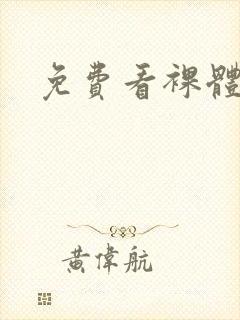 免費看裸體
黃偉航